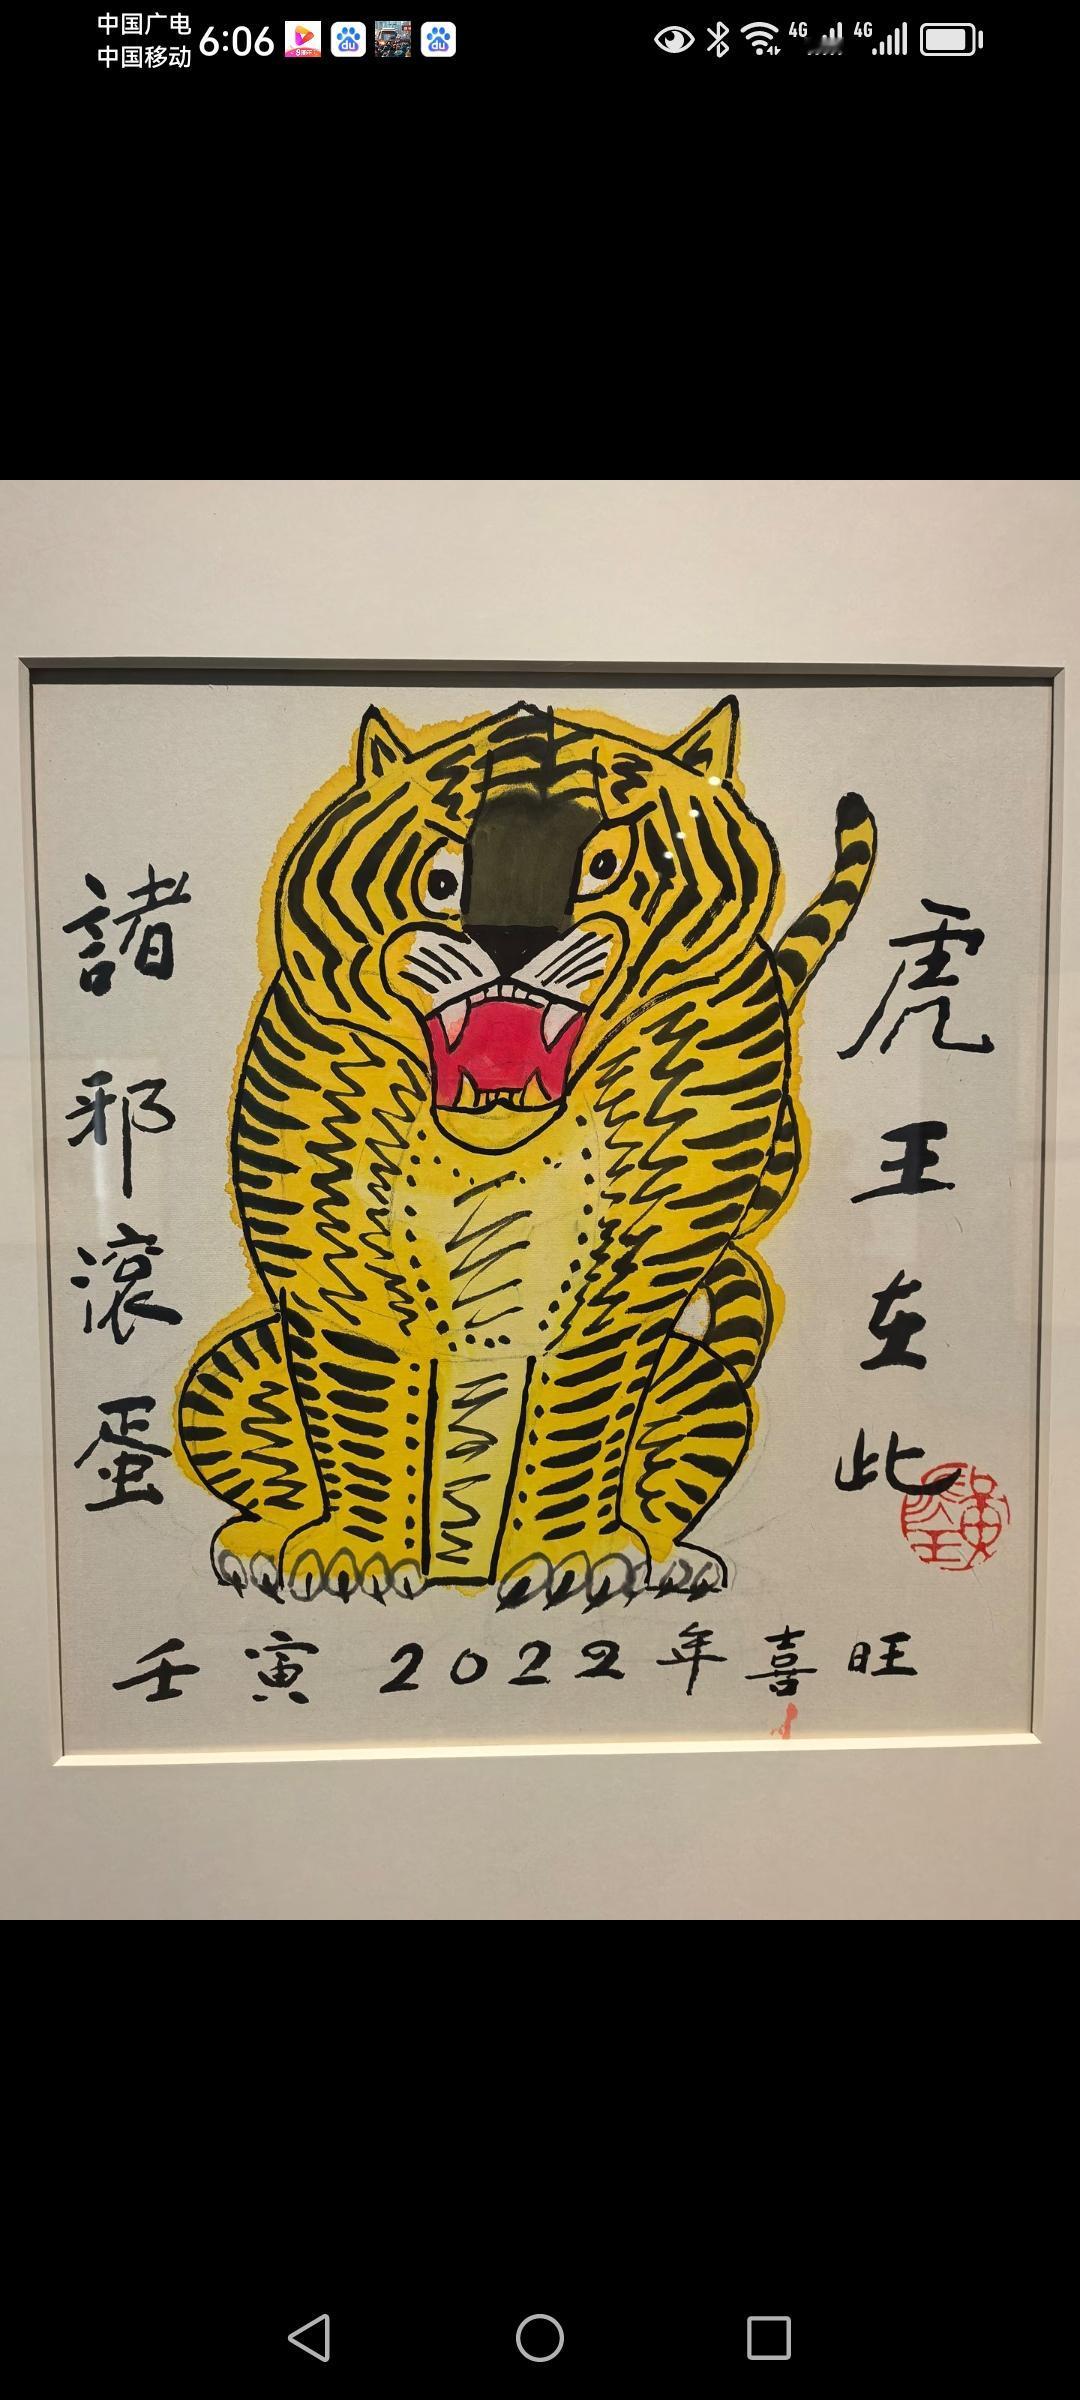 中国广电
中国移动
6:06
4G
4G
虎王在此
諸邪滚蛋
壬寅2022年喜旺